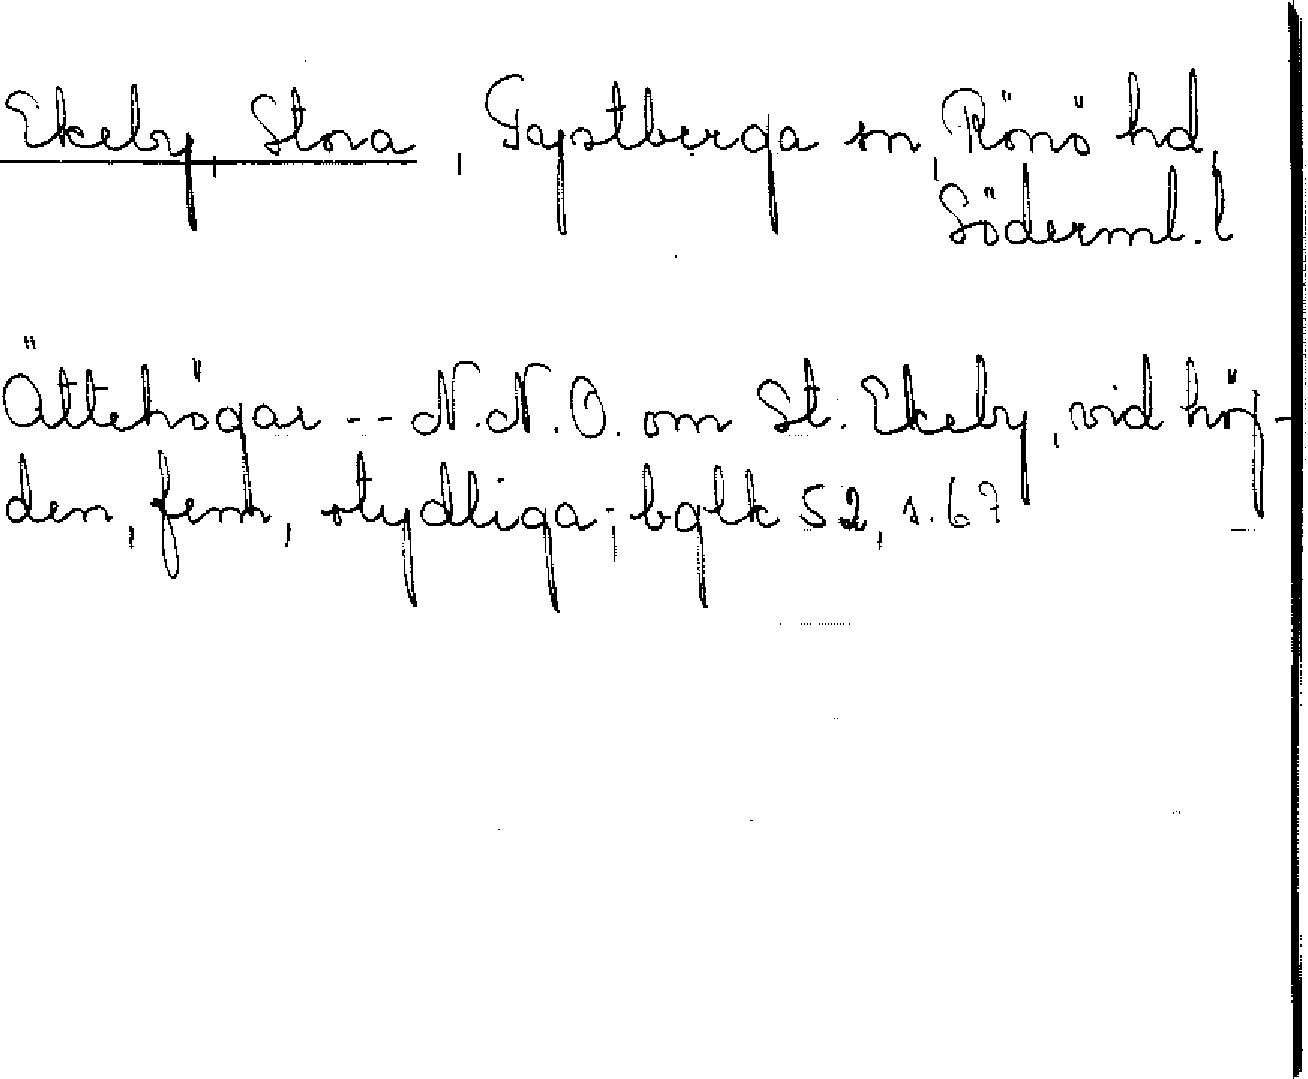 Ekeby, Stora, Gapstberga sn, Rönö hd,
Söderml. l
Ättehögar -- N.N.O. om St. Ekeby, vid höj-
den, fem, otydliga; bglk 52, s. 67